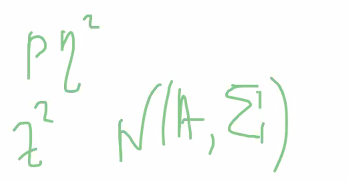 pη²
z² N(A, Σ)